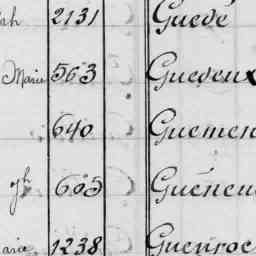 2131 Guedé
Marie 563 Guedeux
640 Guemen
gh 605 Guéneu
1238 Guenroc